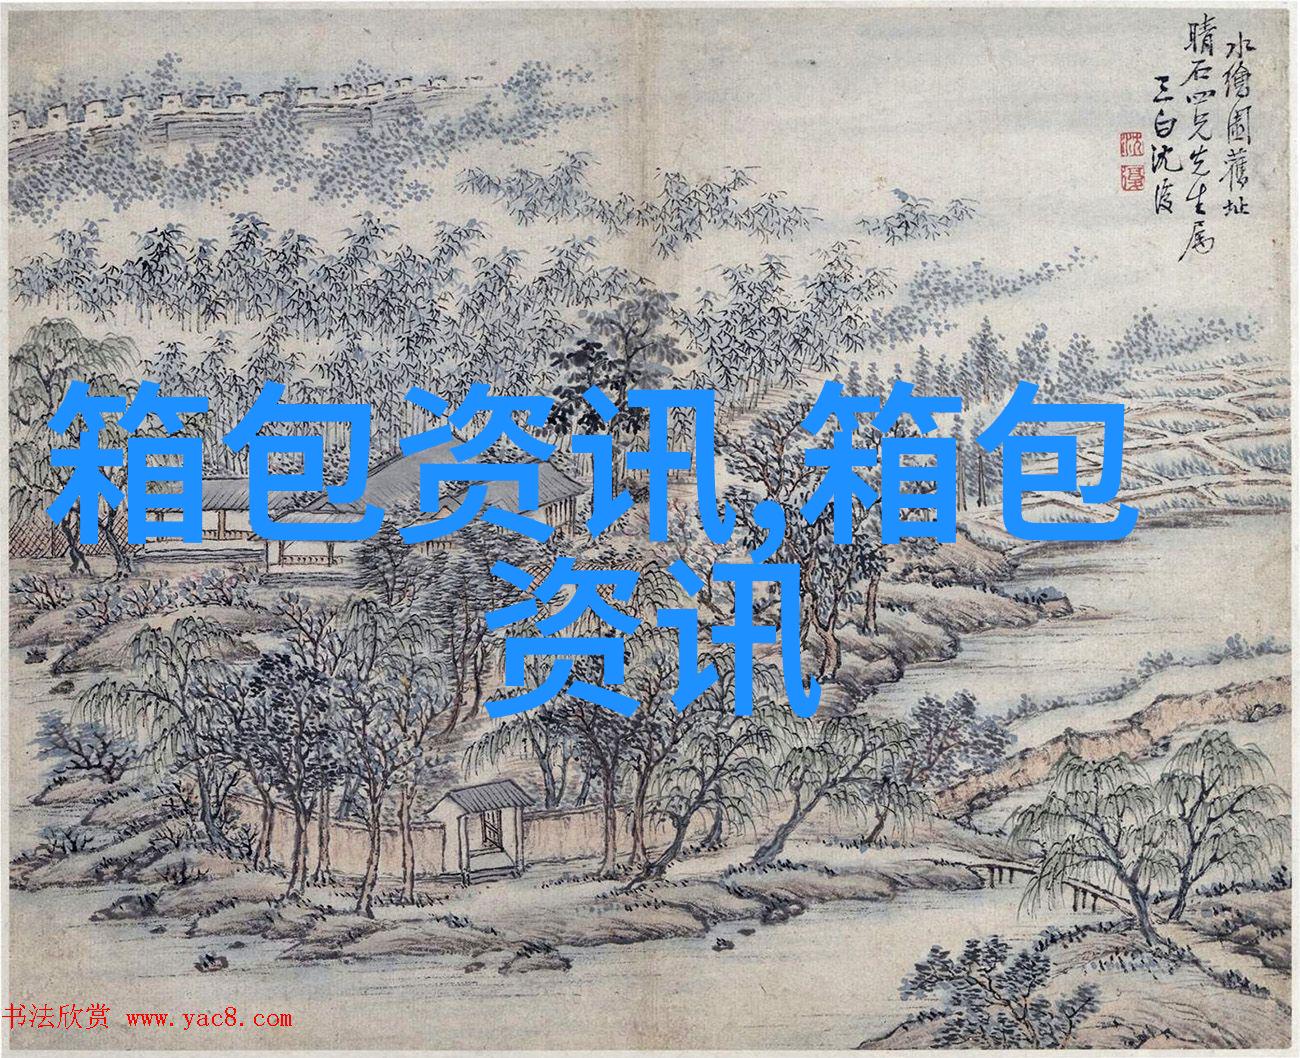 水繪園舊址
晴石四兄先生属
三白沈復
沈
復
箱包资讯,箱包
资讯
书法欣赏 www.yac8.com